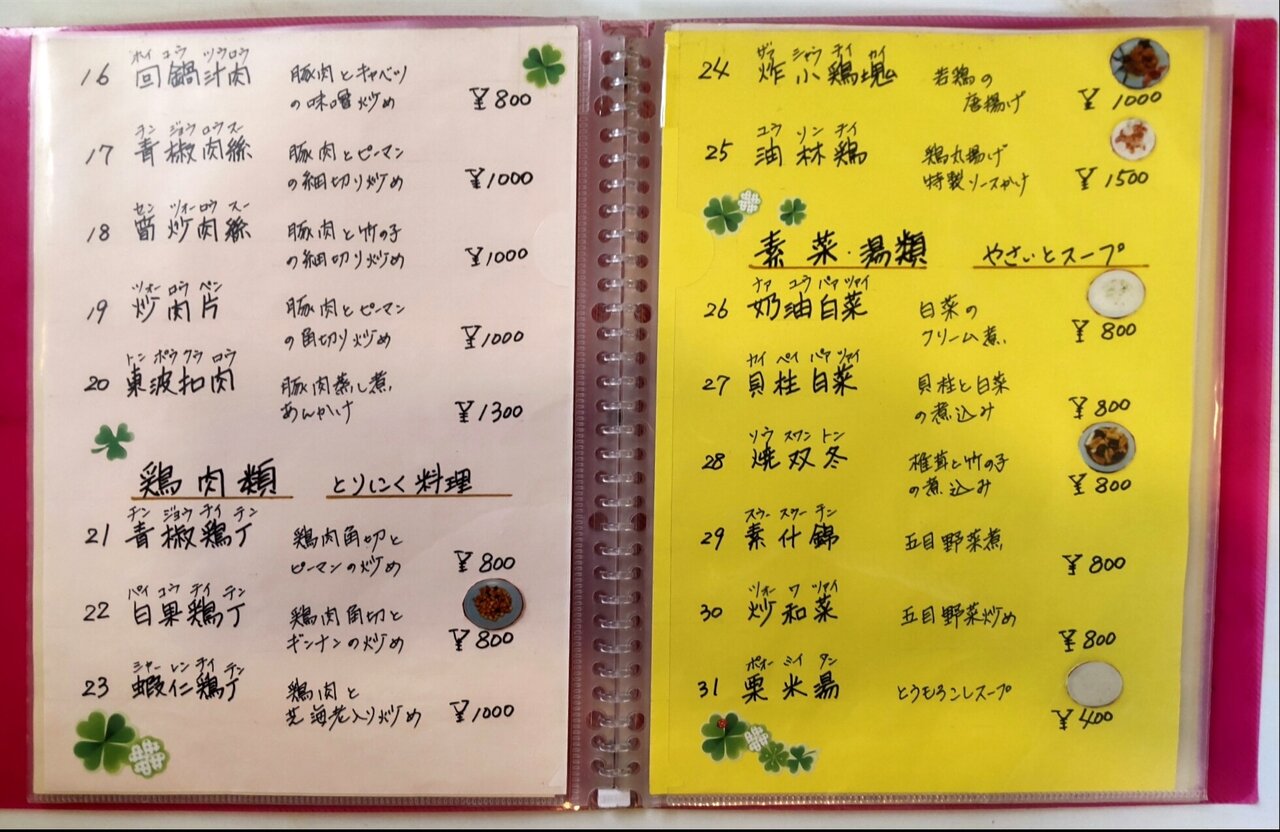 ホイ コウ ツウロウ
16 回鍋汁肉 豚肉とキャベツ
の味噌炒め ¥800
チン ジョウ ロウ スー
17 青椒肉絲 豚肉とピーマン
の細切り炒め ¥1000
セン ツォーロウ スー
18 筍炒肉絲 豚肉と竹の子
の細切り炒め ¥1000
ツォー ロウ ペン
19 炒肉片 豚肉とピーマン
の角切り炒め ¥1000
トン ポウ クウ ロウ
20 東波扣肉 豚肉蒸し煮
あんかけ ¥1300
鶏肉類 とりにく料理
チン ジョウ チイ テン
21 青椒鶏丁 鶏肉角切と
ピーマンの炒め ¥800
パイ コウ チイ テン
22 白果鶏丁 鶏肉角切と
ギンナンの炒め ¥800
シャー レン チイ テン
23 蝦仁鶏丁 鶏肉と
芝海老入り炒め ¥1000
ザァ シャウ チイ カイ
24 炸小鶏塊 若鶏の
唐揚げ ¥1000
ユウ リン チイ
25 油林鶏 鶏丸揚げ
特製ソースかけ ¥1500
素菜・湯類 やさいとスープ
ナァ ユウ パァ ツァイ
26 奶油白菜 白菜の
クリーム煮 ¥800
カイ ペイ パァ ツァイ
27 貝柱白菜 貝柱と白菜
の煮込み ¥800
ソウ スワン トン
28 焼双冬 椎茸と竹の子
の煮込み ¥800
スウー スワー チン
29 素什錦 五目野菜煮
¥800
ツォー ワ ツァイ
30 炒和菜 五目野菜炒め
¥800
ポオー ミイ タン
31 粟米湯 とうもろこしスープ
¥400